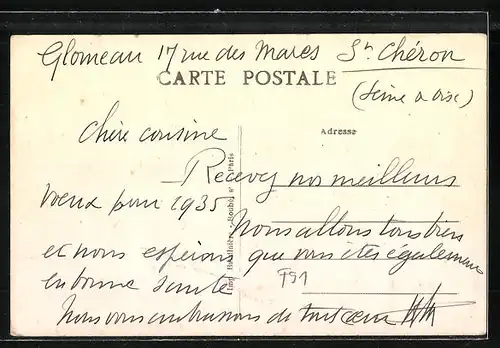 Glomeau 17 rue des Mares St Chéron
CARTE POSTALE
(Seine & Oise)
Adresse
Chère cousine
Recevez nos meilleurs
voeux pour 1935
Nous allons tous bien
et nous espérons que vous êtes également
en bonne santé
Nous vous embrassons de tout coeur
Paris